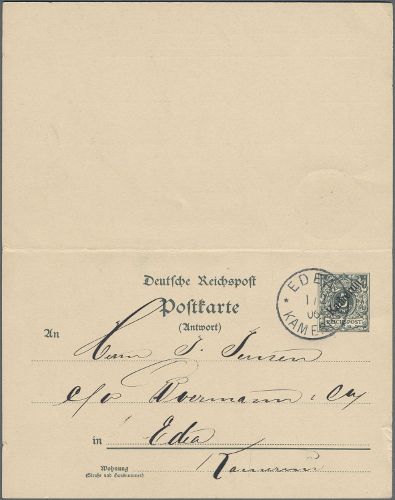 Deutsche Reichspost
Postkarte
(Antwort)
EDEA
KAME
Kamerun
REICHSPOST
An
Herrn J. Jensen
c/o Woermann & Co
in Edea
Kamerun
Wohnung
(Straße und Hausnummer)